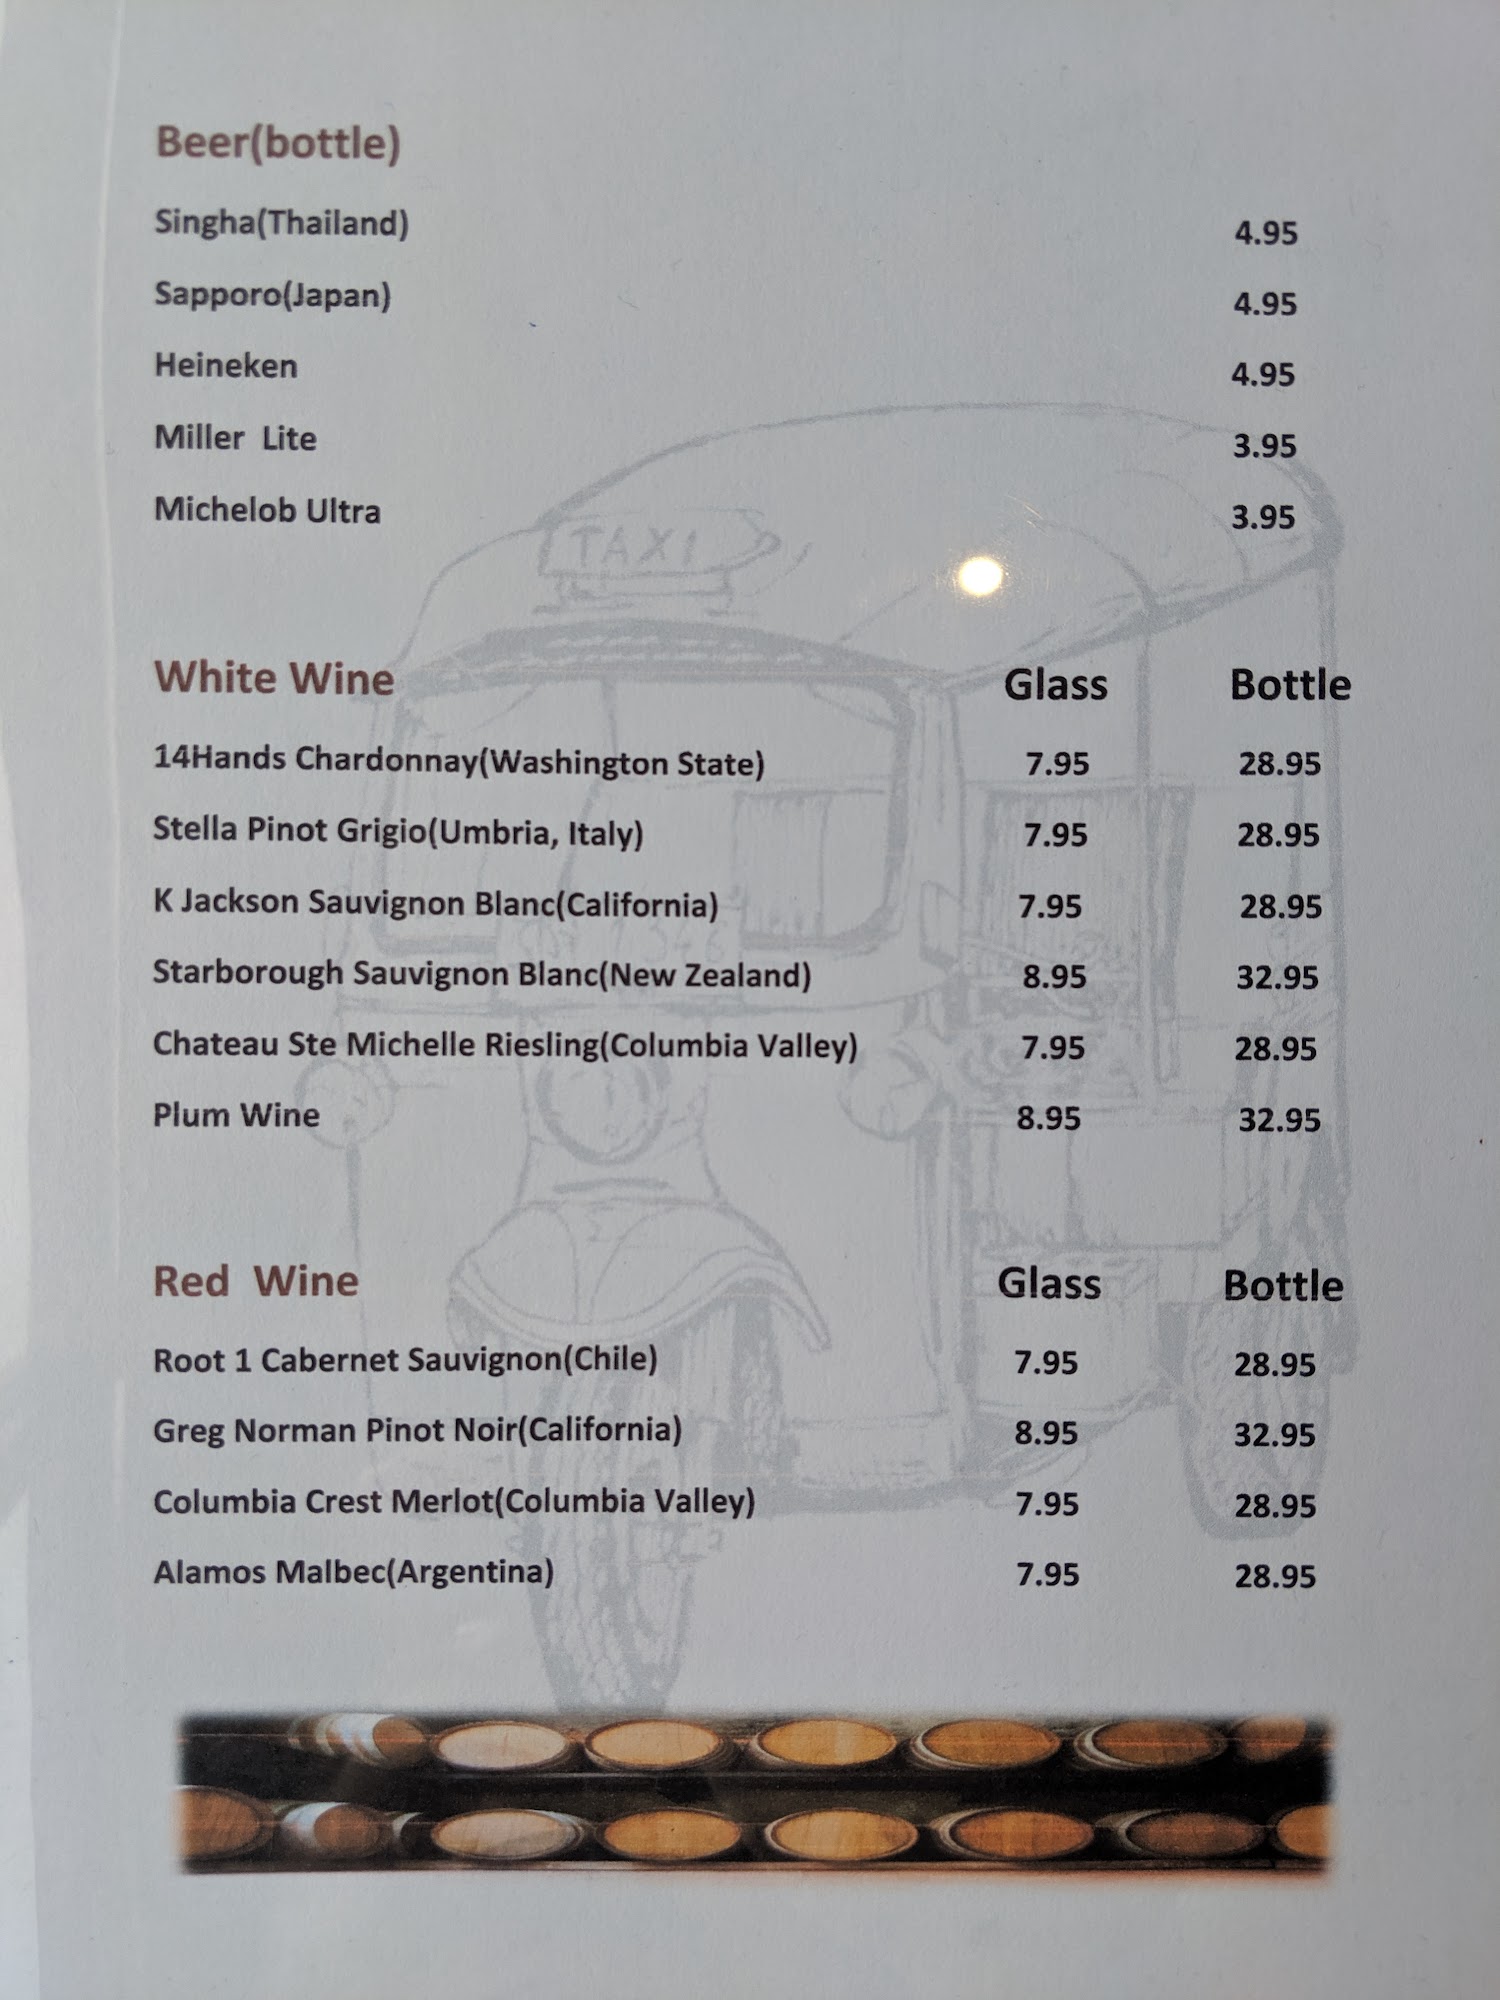 Beer(bottle)
Singha(Thailand) 4.95
Sapporo(Japan) 4.95
Heineken 4.95
Miller Lite 3.95
Michelob Ultra 3.95
TAXI
White Wine Glass Bottle
14Hands Chardonnay(Washington State) 7.95 28.95
Stella Pinot Grigio(Umbria, Italy) 7.95 28.95
K Jackson Sauvignon Blanc(California) 7.95 28.95
Starborough Sauvignon Blanc(New Zealand) 8.95 32.95
Chateau Ste Michelle Riesling(Columbia Valley) 7.95 28.95
Plum Wine 8.95 32.95
Red Wine Glass Bottle
Root 1 Cabernet Sauvignon(Chile) 7.95 28.95
Greg Norman Pinot Noir(California) 8.95 32.95
Columbia Crest Merlot(Columbia Valley) 7.95 28.95
Alamos Malbec(Argentina) 7.95 28.95